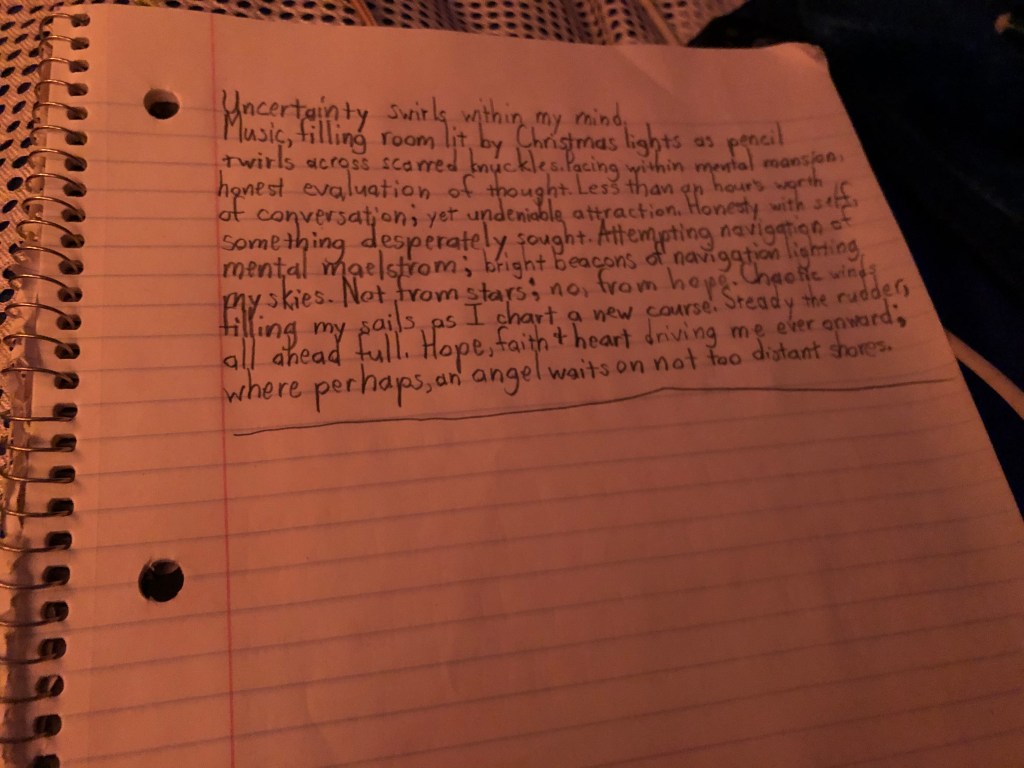 Uncertainty swirls within my mind.
Music, filling room lit by Christmas lights as pencil
twirls across scarred knuckles. Pacing within mental mansion,
honest evaluation of thought. Less than an hour's worth
of conversation; yet undeniable attraction. Honesty with self,
something desperately sought. Attempting navigation of
mental maelstrom; bright beacons of navigation lighting
my skies. Not from stars; no, from hope. Chaotic winds
filling my sails as I chart a new course. Steady the rudder,
all ahead full. Hope, faith + heart driving me ever onward;
where perhaps, an angel waits on not too distant shores.